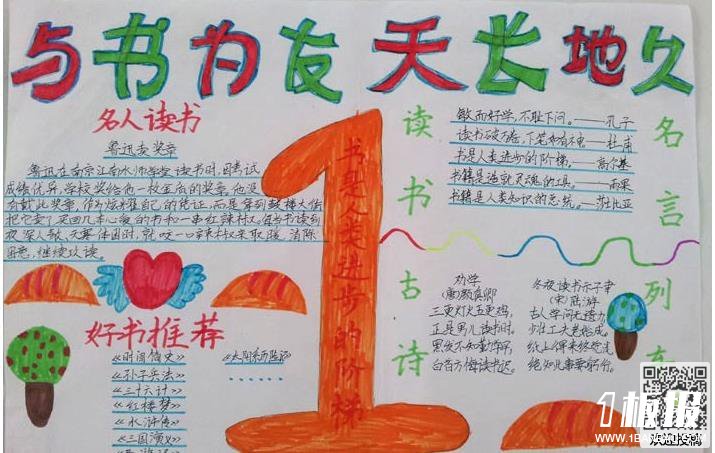 与书为友天长地久
名人读书
鲁迅卖奖章
鲁迅在南京江南水师学堂读书时,因考试
成绩优异,学校奖给他一枚金质的奖章。他没
有戴此奖章,作为炫耀自己的凭证,而是拿到鼓楼大街
把它卖了,买回几本心爱的书和一串红辣椒。每当书读到
夜深人静、天寒体困时,就咬一口辣椒来取暖,消除
困意,继续攻读。
好书推荐
《时间简史》
《孙子兵法》
《三十六计》
《红楼梦》
《水浒传》
《三国演义》
《太阳系历险记》
1
书是人类进步的阶梯
读书古诗
敏而好学,不耻下问。——孔子
读书破万卷,下笔如有神——杜甫
书是人类进步的阶梯——高尔基
书籍是造就灵魂的工具。——雨果
书籍是人类知识的总统。——莎士比亚
名言列车
劝学
(唐)颜真卿
三更灯火五更鸡,
正是男儿读书时。
黑发不知勤学早,
白首方悔读书迟。
冬夜读书示子聿
(宋)陆游
古人学问无遗力,
少壮工夫老始成。
纸上得来终觉浅
绝知此事要躬行。
1板报
WWW.1BANBAO.COM
欢迎投稿